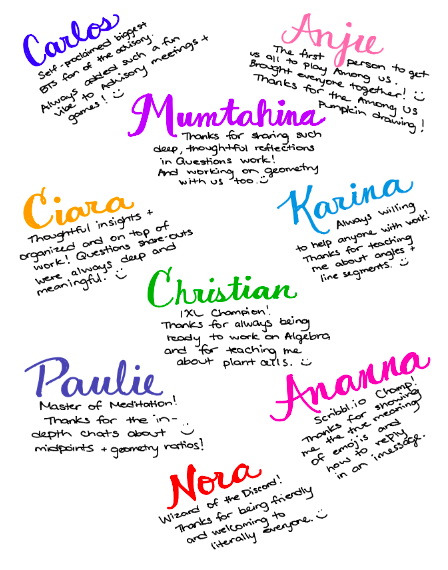 Carlos
Self-proclaimed biggest
BTS fan of the advisory.
Always added such a fun
vibe to Advisory meetings +
games! :)
Anjie
The first person to get
us all to play Among us.
Brought everyone together! :)
Thanks for the Among Us
pumpkin drawing!
Mumtahina
Thanks for sharing such
deep, thoughtful reflections
in Questions work!
And working on geometry
with us too :)
Ciara
Thoughtful insights +
organized and on top of
work! Questions share-outs
were always deep and
meaningful. :)
Karina
Always willing
to help anyone with work!
Thanks for teaching
me about angles +
line segments. :)
Christian
IXL Champion!
Thanks for always being
ready to work on Algebra
and for teaching me
about plant cells. :)
Paulie
Master of Meditation!
Thanks for the in-
depth chats about :)
midpoints + geometry ratios!
Ananna
Scribbl.io Champ!
Thanks for showing
me the true meaning
of emojis and
how to reply
in an imessage.
Nora
Wizard of the Discord!
Thanks for being friendly
and welcoming to
literally everyone. :)